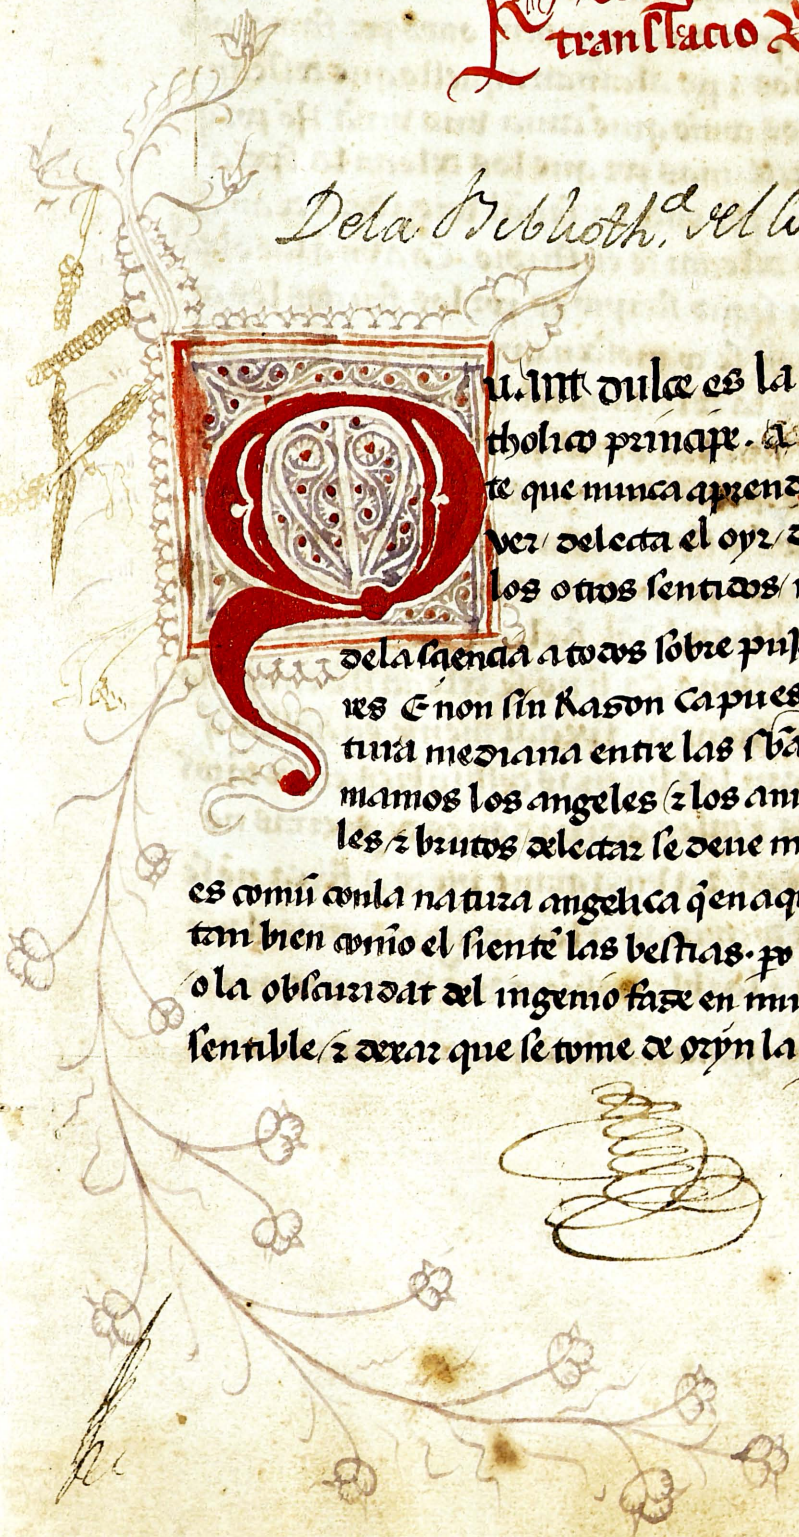 translacio
Dela Biblioth.ᵃ del
Quant dulce es la
tholico principe.
te que nunca aprend
ver / delecta el oyr /
los otros sentidos /
dela sciencia a todos sobre pu
res E non sin Razon Ca pues
tura mediana entre las sb̄a
mamos los angeles / ⁊ los ani
les / ⁊ brutos delectar se deue m
es comū conla natura angelica q̄ en aq
tan bien com̄o el siente las bestias. ꝑo
o la obscuridat del ingenio faze en mu
sentible / ⁊ dexar que se tome de oryn la